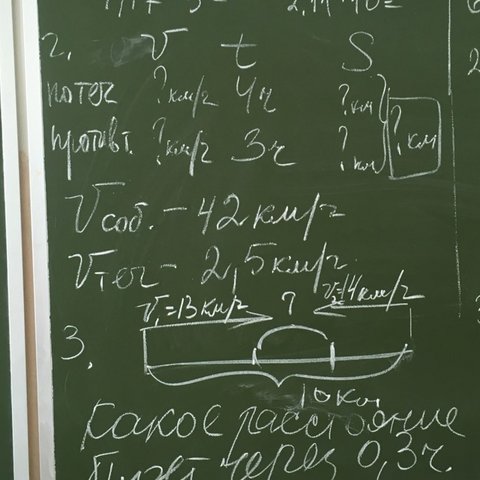 2. v t S
по теч ? км/ч 4ч ? км
против т. ? км/ч 3ч ? км
? км
Vсоб. - 42 км/ч
Vтеч - 2,5 км/ч
V₁=13 км/ч ? V₂=14 км/ч
3.
10 км
Какое расстояние
будет через 0,3ч.